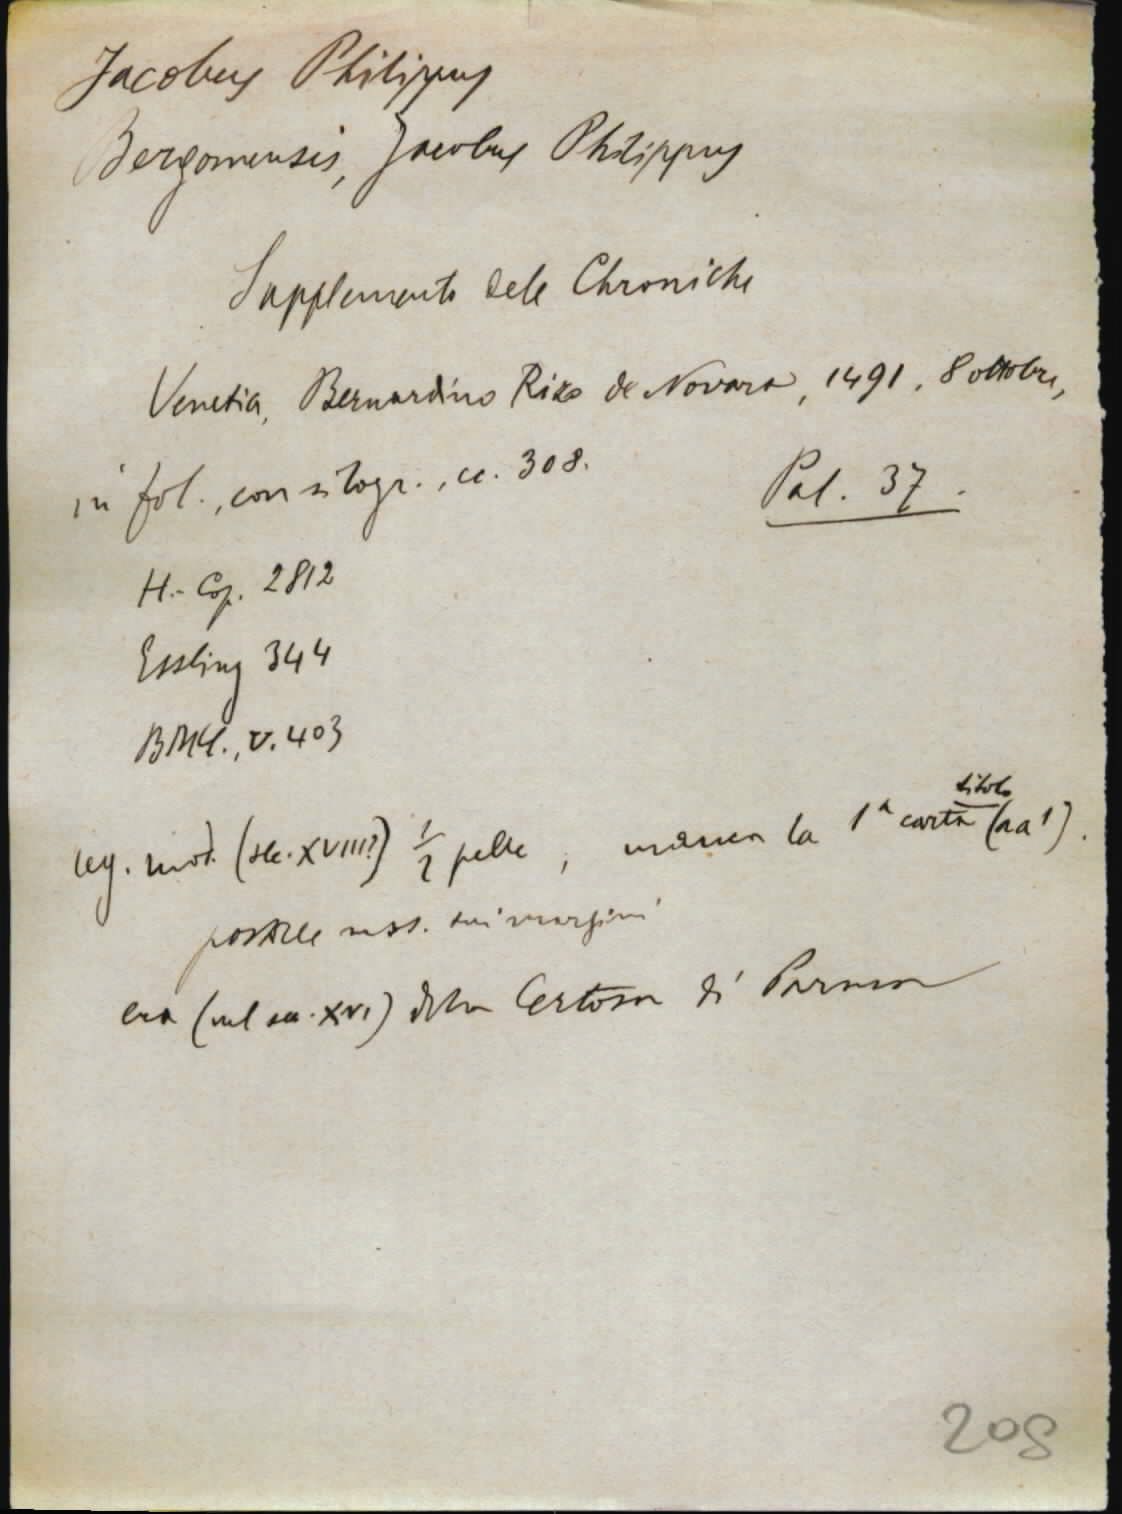 Jacobus Philippus
Bergomensis, Jacobus Philippus
Supplemento dele Chroniche
Venetia, Bernardino Rizo de Novara, 1491, 8 ottobre,
in fol., con silogr., cc. 308.
Pal. 37.
H.-Cop. 2812
Essling 344
BMC., V. 403
titolo
leg. mod. (sec. XVIII?) 1/2 pelle, manca la 1ª carta (aa1).
postille mss. sui margini
era (nel sec. XVI) della Certosa di Parma
208